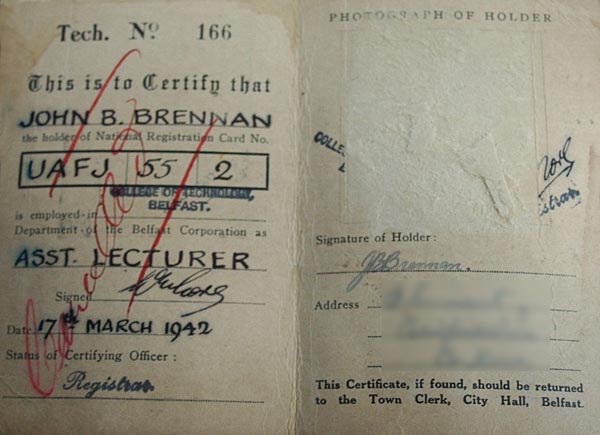 Tech. Nº 166
This is to Certify that
JOHN B. BRENNAN
the holder of National Registration Card No.
UAFJ 55 2
COLLEGE OF TECHNOLOGY,
BELFAST.
is employed in
Department of the Belfast Corporation as
ASST. LECTURER
Signed
Date 17th MARCH 1942
Status of Certifying Officer :
Registrar.
Cancelled
PHOTOGRAPH OF HOLDER
COLLE
istrar
Signature of Holder :
JBBrennan.
Address
This Certificate, if found, should be returned
to the Town Clerk, City Hall, Belfast.